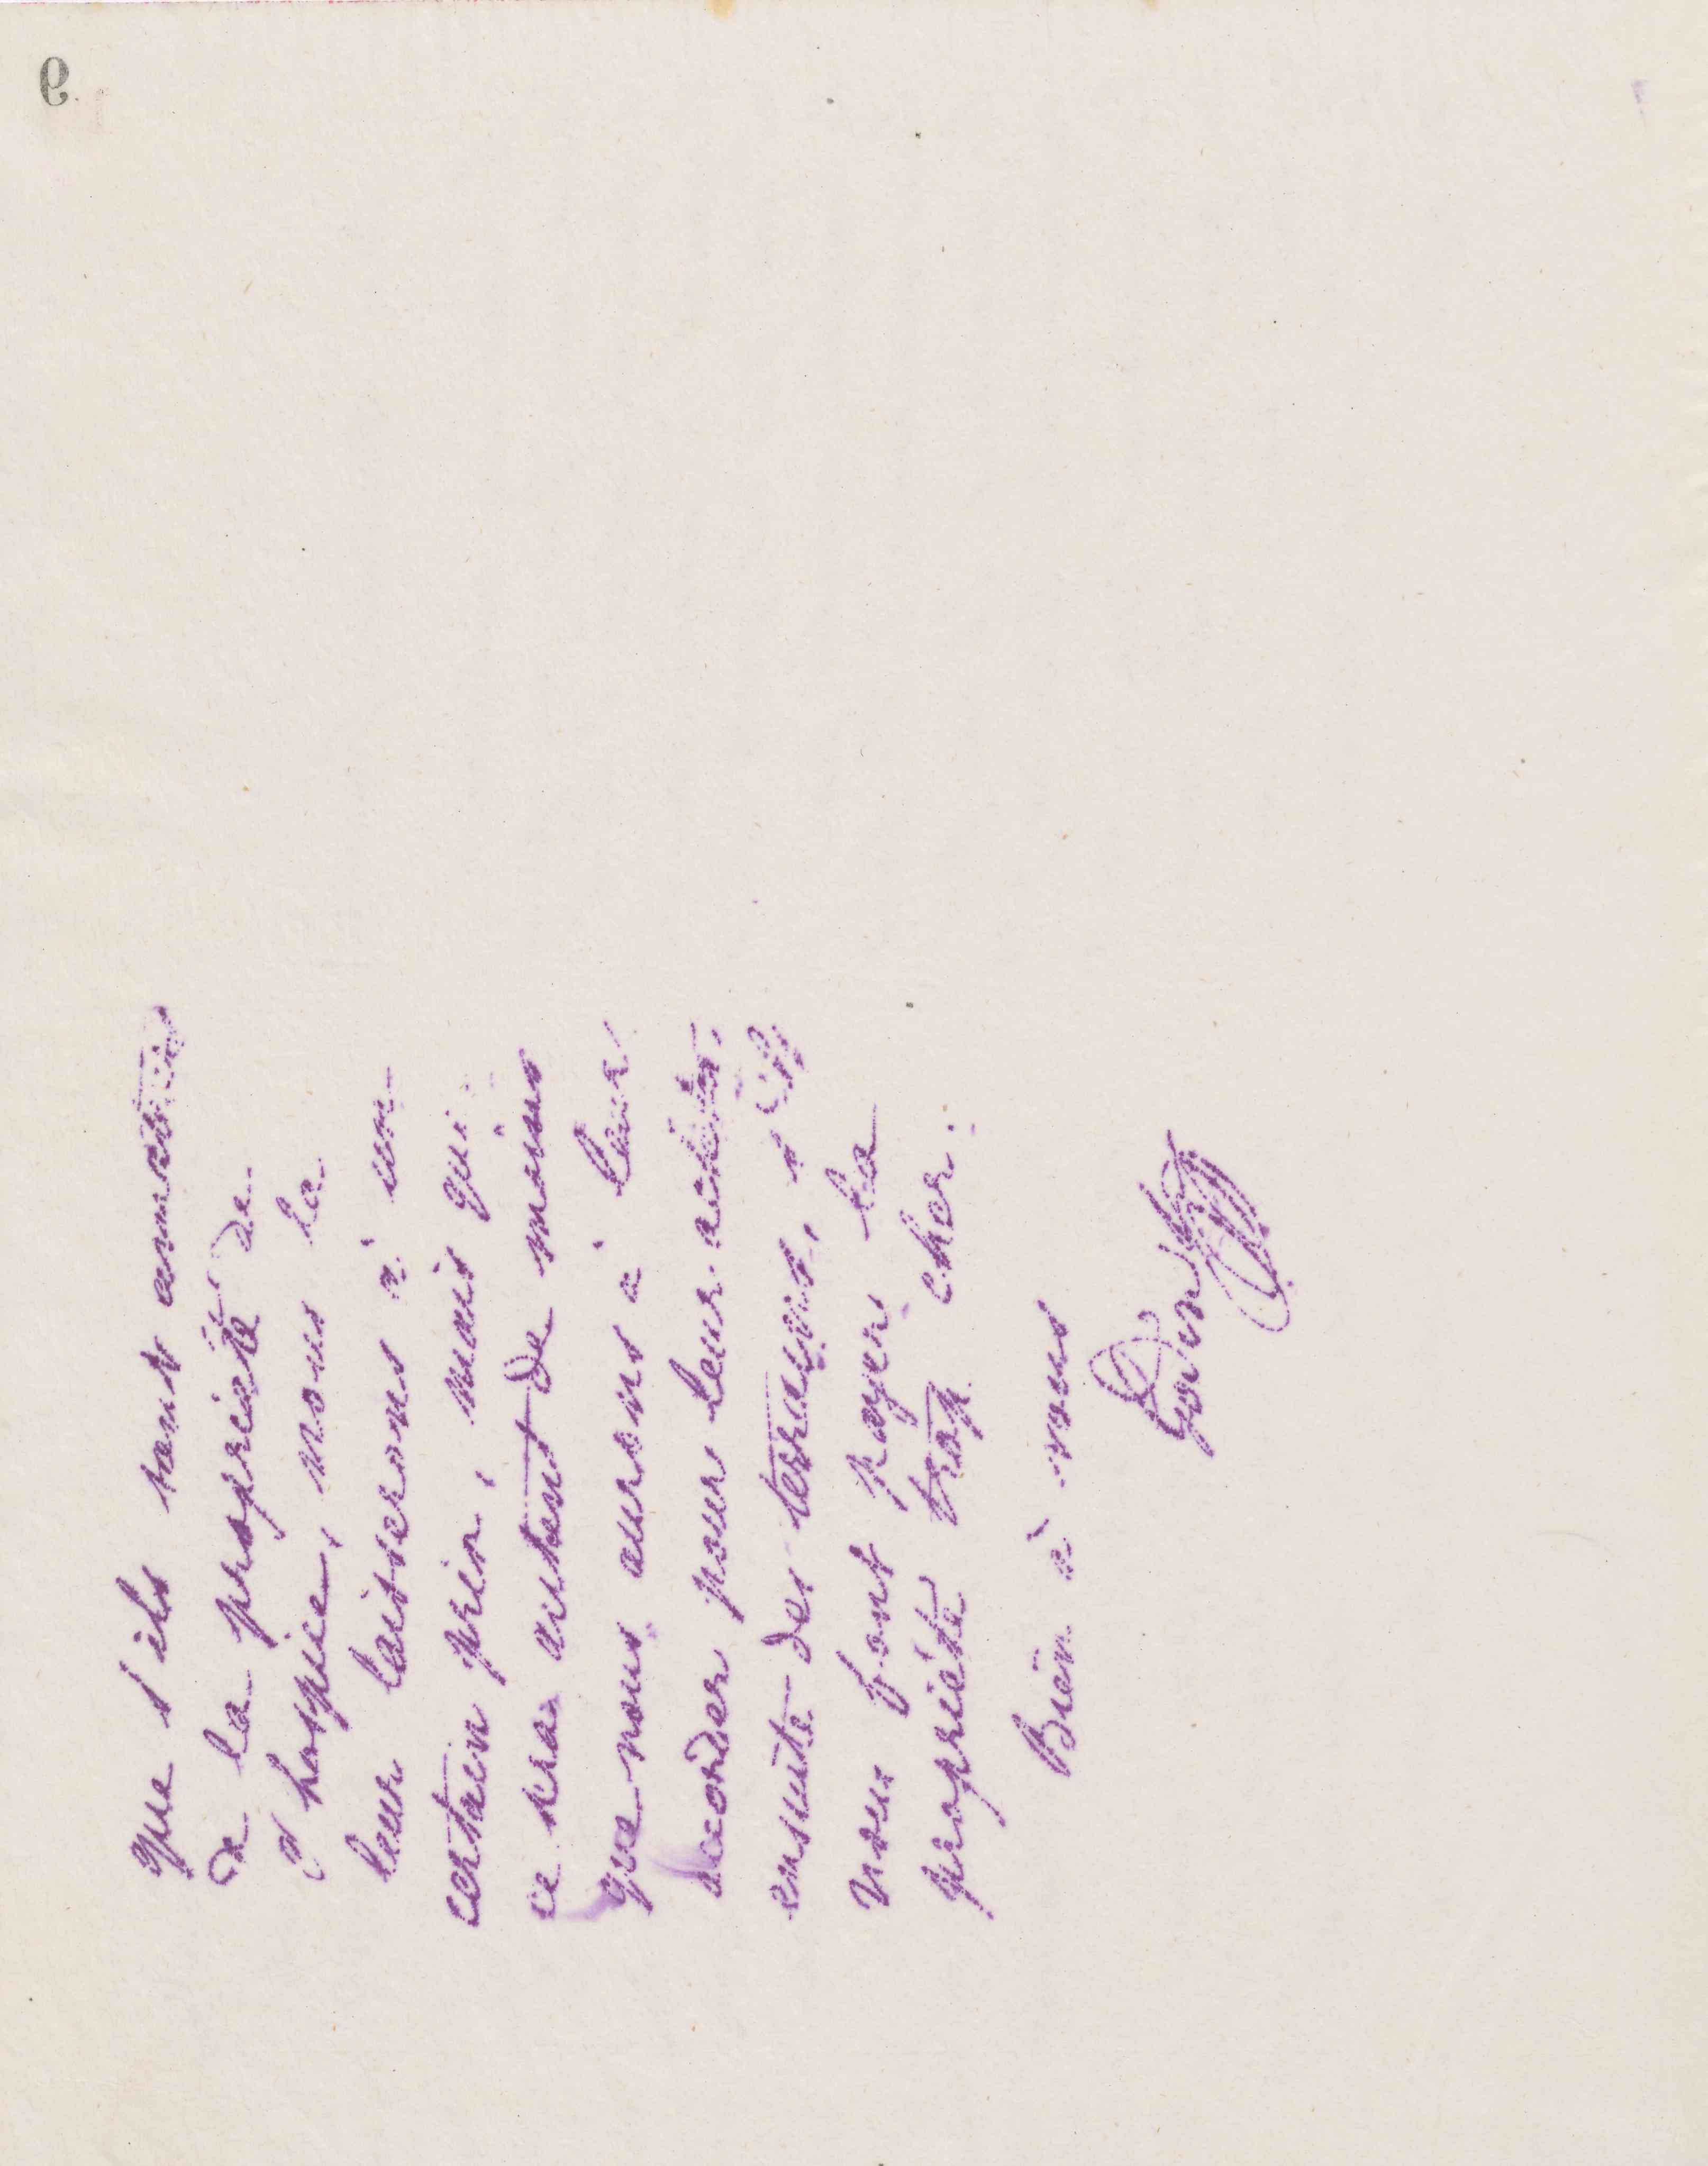 que s'ils sont amateurs
de la propriété de
l'hospice, nous la
leur laisserons à un
certain prix, mais qui
ce sera autant de moins
que nous aurons à leur
accorder pour leur acheter
ensuite des terrains, s'ils
nous font payer la
propriété trop cher.
Bien à vous
Godin